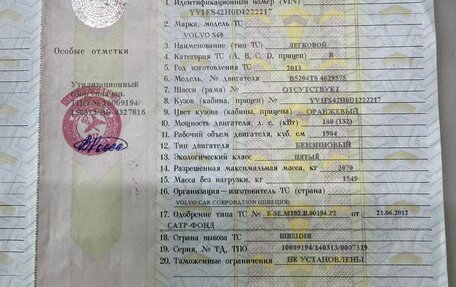 1. Идентификационный номер (VIN)
YV1FS42H0D1222217
2. Марка, модель ТС
VOLVO S60
3. Наименование (тип ТС) ЛЕГКОВОЙ
4. Категория ТС (А, В, С, D, прицеп) B
5. Год изготовления ТС 2013
6. Модель, № двигателя B5204T8 4629575
7. Шасси (рама) № ОТСУТСТВУЕТ
8. Кузов (кабина, прицеп) № YV1FS42H0D1222217
9. Цвет кузова (кабины, прицепа) ОРАНЖЕВЫЙ
10. Мощность двигателя, л. с. (кВт) 180 (132)
11. Рабочий объем двигателя, куб. см 1984
12. Тип двигателя БЕНЗИНОВЫЙ
13. Экологический класс ПЯТЫЙ
14. Разрешенная максимальная масса, кг 2070
15. Масса без нагрузки, кг 1549
16. Организация—изготовитель ТС (страна)
VOLVO CAR CORPORATION (ШВЕЦИЯ)
17. Одобрение типа ТС № E-SE.MT02.B.00104.P2 от 21.06.2012
САТР-ФОНД
18. Страна вывоза ТС ШВЕЦИЯ
19. Серия, № ТД, ТПО 10009194/140313/0007519
20. Таможенные ограничения НЕ УСТАНОВЛЕНЫ
Особые отметки
Утилизационный
ТПО № 10009194/